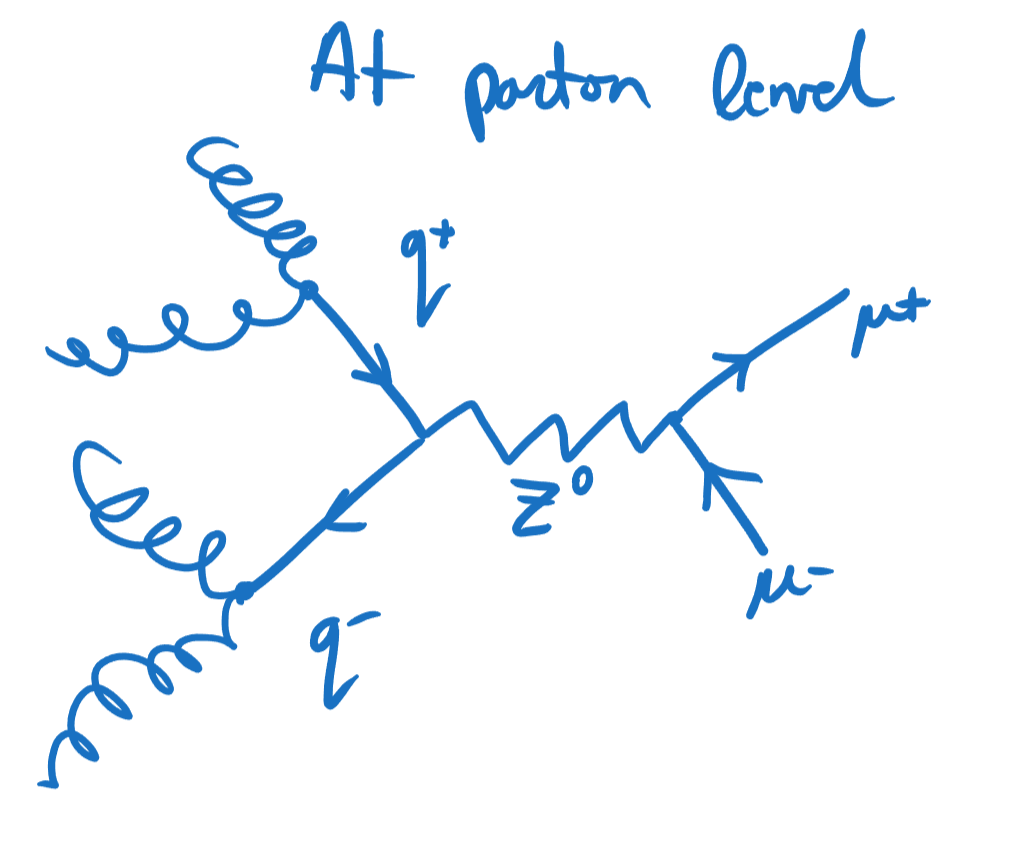 At parton level
q⁺
μ⁺
Z⁰
μ⁻
q⁻